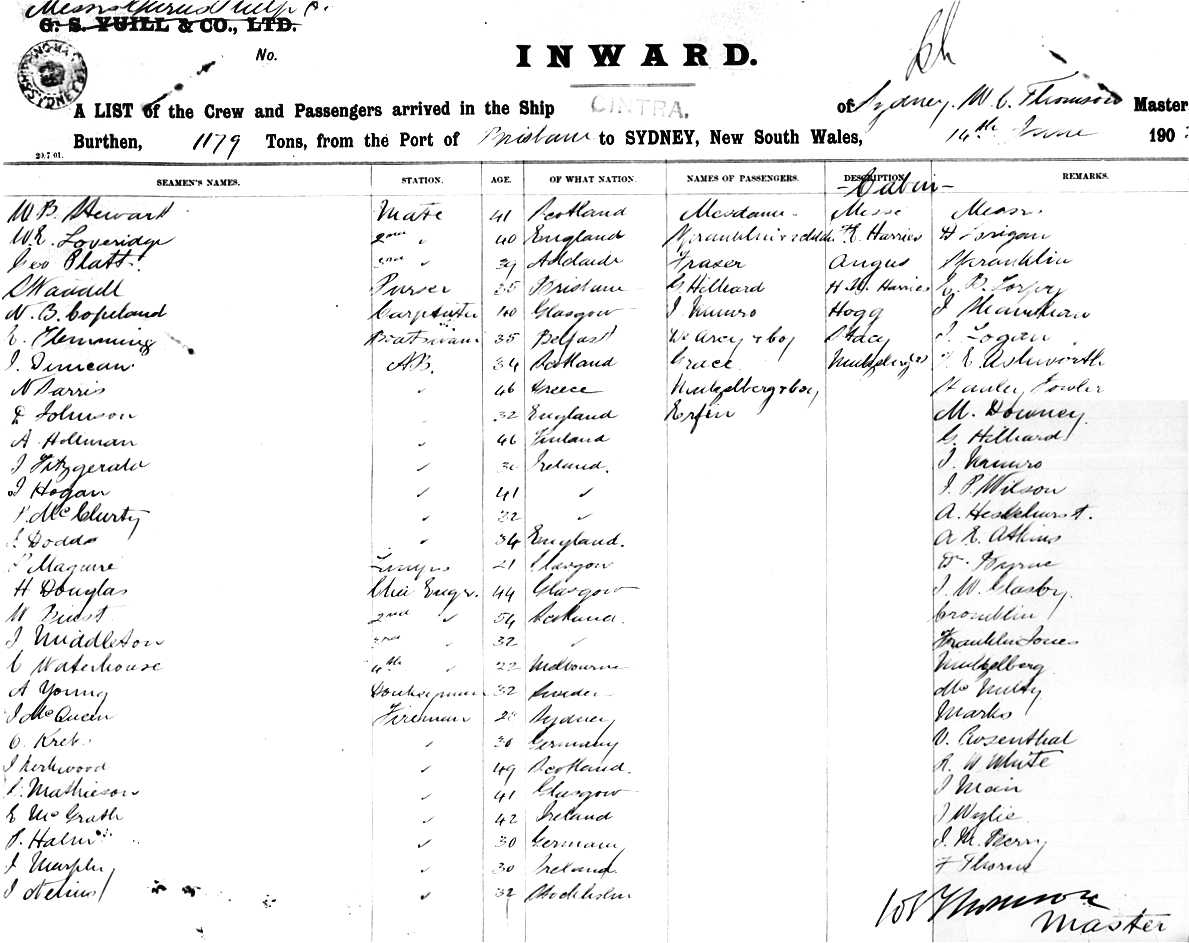 G. S. YUILL & CO., LTD.
No.
INWARD.
SHIPPING MASTER SYDNEY
A LIST of the Crew and Passengers arrived in the Ship CINTRA, of Sydney, W. C. Thomson Master
Burthen, 1179 Tons, from the Port of Brisbane to SYDNEY, New South Wales, 14th June 190
20.7.01.
SEAMEN'S NAMES. STATION. AGE. OF WHAT NATION. NAMES OF PASSENGERS. DESCRIPTION REMARKS.
-Cabin-
W. B. Stewart Mate 41 Scotland Mesdames Misses Messrs.
W. E. Loveridge 2nd " 40 England Franklin & child E. Harries H
Geo Platt 3rd " 39 Adelaide Fraser Angus Franklin
Waddell Purser 35 Brisbane G Hilliard H. W. Harries B.
N. B. Copeland Carpenter 40 Glasgow J Munro Hogg J
C. Flemming Boatswain 35 Belfast & boy Stacy J. Logan
J. Duncan A.B. 34 Scotland Grace E. Ashworth
N Parris 46 Greece & boy Fowler
D Johnson 32 England M. Downey
A Hollman 46 Finland G. Hilliard
J Fitzgerald Ireland. J. Munro
J Hogan " 41 " J. P. Wilson
P. McClurty " 32 " A. Heskhurst.
J. Dodds " 34 England. A E. Atkins
P Maguire 21 Glasgow Byrne
H Douglas Chie Engr. 44 Glasgow J. W. Glasby.
W 2nd " 54 Scotland.
J Middleton 3rd " 32 " Franklin Jones
C Waterhouse 4th " 22 Melbourne Muhzelberg
A Young Donkeyman 32 Sweden McNulty
J McQueen Fireman Sydney Marks
O. Kreb. " 30 Germany V. Rosenthal
J Kerkwood " 49 Scotland. R. W White
P. Mathieson " 41 Glasgow J Main
E McGrath " 42 Ireland J Wylie.
P. Halm " 30 Germany J. M. Berry
J Murphy " 30 Ireland F Thorne
J " 32 Stockholm
W C Thomson
Master